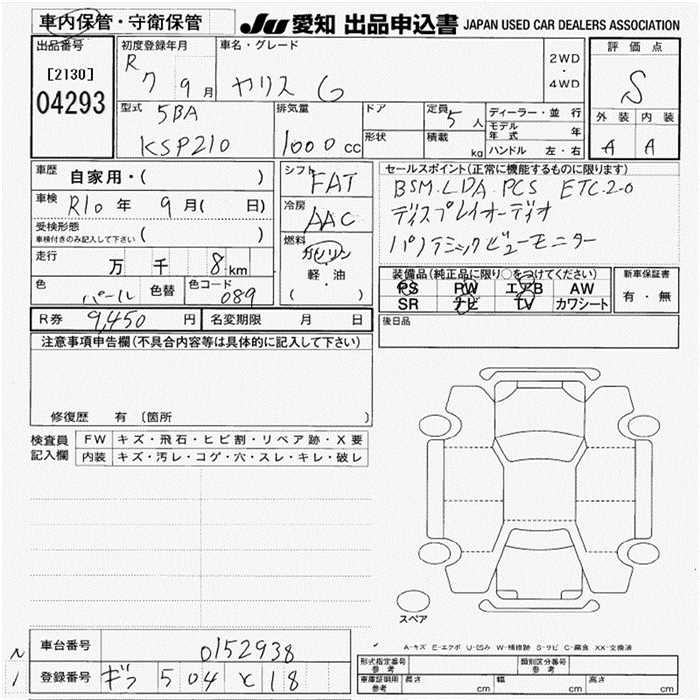 車内保管・守衛保管
JU 愛知 出品申込書 JAPAN USED CAR DEALERS ASSOCIATION
出品番号
[2130]
04293
初度登録年月
R 7 9月
車名・グレード
ヤリス G
2WD
・
4WD
評価点
S
外装 内装
A A
型式
5BA
KSP210
排気量
1000 cc
ドア
形状
定員
5人
積載
kg
ディーラー・並 行
モデル年式 年
ハンドル 左・右
車歴
自家用・( )
車検
R10年 9月( 日)
受検形態
車検付きのみ記入して下さい ( )
走行
万 千 8km
色
パール 色替
色コード
089
シフト
FAT
冷房
AAC
燃料
ガソリン
軽・油
( )
セールスポイント(正常に機能するものに限ります)
BSM.LDA PCS ETC2.0
ディスプレイオーディオ
パノラミックビューモニター
装備品(純正品に限り○をつけてください)
PS PW エアB AW
SR ナビ TV カワシート
新車保証書
有・無
R券 9,450 円
名変期限 月 日
後日品
注意事項申告欄(不具合内容等は具体的に記入して下さい)
修復歴 有 〔箇所
検査員
記入欄
FW キズ・飛石・ヒビ割・リペア跡・X要
内装 キズ・汚レ・コゲ・穴・スレ・キレ・破レ
スペア
A-キズ E-エクボ U-凹み W-補修跡 S-サビ C-腐食 XX-交換済
車台番号
0152938
登録番号
ギフ 504 と 18
形式指定番号
参考
類別区分番号
参考
車庫証明用
参考
長さ cm
幅 cm
高さ cm